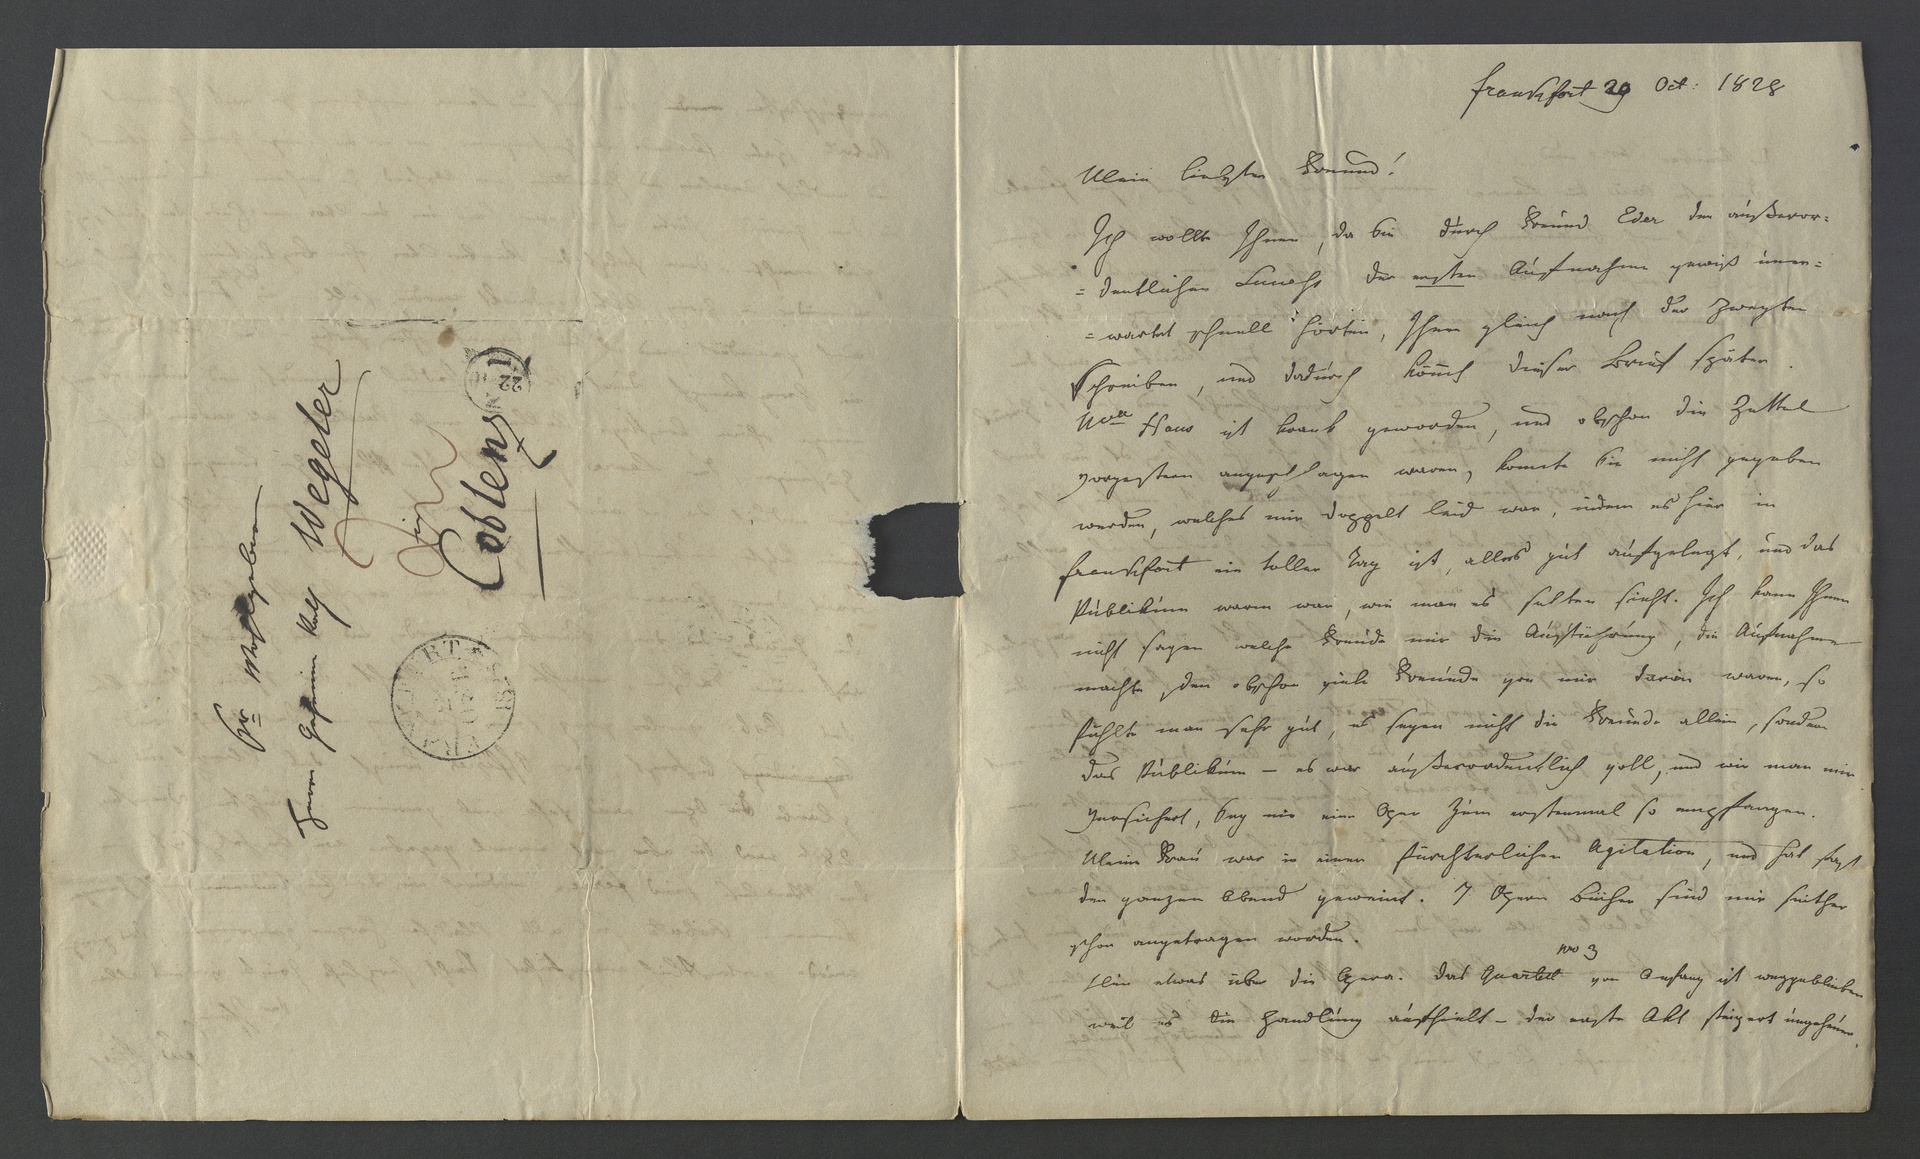 Sr Wohlgeboren
Herrn Geheim Rath Wegeler
in
Coblenz
FRANKFURT
Frankfort 29 Oct: 1828
Mein liebster Freund!
Ich wollte Ihnen, da Sie durch Freund Eder den außeror=
=dentlichen Succeß der ersten Aufnahme gewiß uner=
=wartet schnell hörten, Ihnen gleich nach der zweyten
Schreiben, und dadurch kömmt dieser Brief später.
ist krank geworden, und obschon die Zettel
vorgestern angeschlagen waren, konnte Sie nicht gegeben
werden, welches mir doppelt leid war, indem es hier in
Frankfort ein toller Tag ist, alles gut aufgelegt, und das
Publikum warm war, wie man es selten sieht. Ich kann Ihnen
nicht sagen welche Freude mir die Aufführung, die Aufnahme
machte, den obschon viele Freunde von mir darin waren, so
fühlte man sehr gut, es seyen nicht die Freunde allein, sondern
das Publikum – es war außerordentlich voll, und wie man mir
versichert, sey nie eine Oper zum erstenmal so empfangen.
Meine Frau war in einer fürchterlichen Agitation, und hat fast
den ganzen Abend geweint. 7 Opern Bücher sind mir seither
schon angetragen worden.
No 3
Nun etwas über die Opera. Das Quartett von Anfang ist weggeblieben
weil es die Handlung aufhielt – der erste Akt steigert ungeheuer.